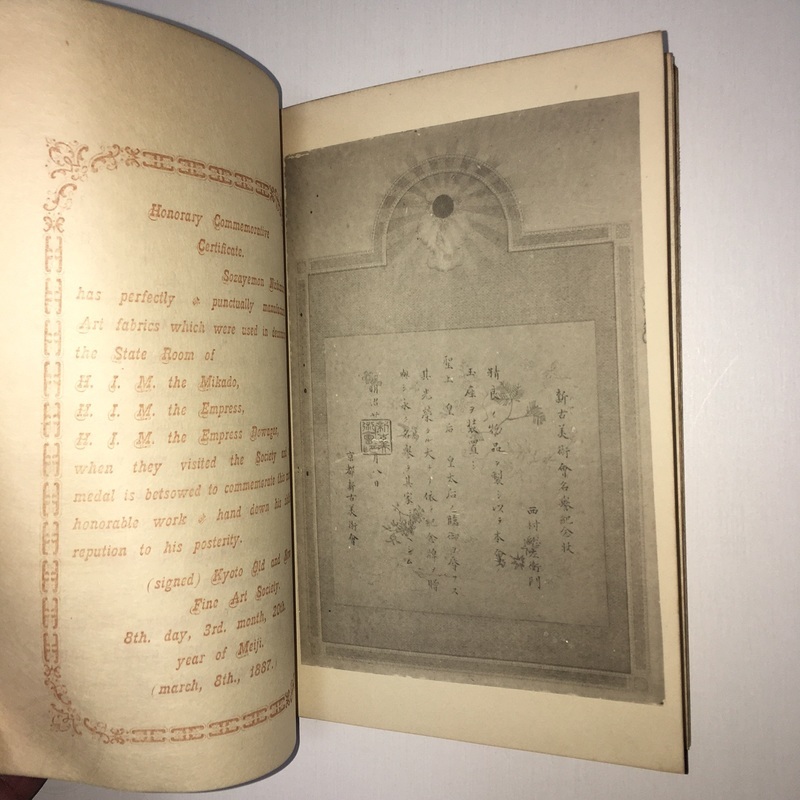 Honorary Commemorative
Certificate.
Sozayemon
has perfectly & punctually
Art fabrics which were used in
the State Room of
H. I. M. the Mikado,
H. I. M. the Empress,
H. I. M. the Empress Dowager,
when they visited the Society
medal is betsowed to commemorate this
honorable work & hand down his
repution to his posterity.
(signed) Kyoto Old and
Fine Art Society.
8th. day, 3rd. month, 20th
year of Meiji.
(march, 8th., 1887.)
新古美術會名譽紀念狀
西村 左衛門
精良ノ物品ヲ製シ以テ本會
玉座ヲ裝置シ
聖上 皇后 皇太后
其光榮 大 依テ紀念牌ヲ贈
以テ永ク名譽ヲ其家
月八日
京都新古美術會